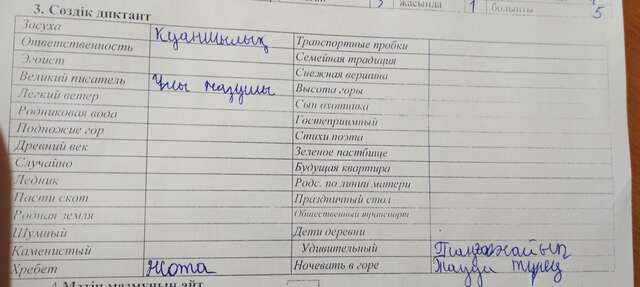 жасында 1 болыпты 5
3. Сөздік диктант
Засуха Қуаңшылық Транспортные пробки
Ответственность Семейная традиция
Эгоист Снежная вершина
Великий писатель Ұлы жазушы Высота горы
Легкий ветер Сын охотника
Родниковая вода Гостеприимный
Подножие гор Стихи поэта
Древний век Зеленое пастбище
Случайно Будущая квартира
Ледник Родс. по линии матери
Пасти скот Праздничный стол
Родная земля Общественный транспорт
Шумный Дети деревни
Каменистый Удивительный
Хребет Жота Ночевать в горе
4 Мәтін мазмұнын айт